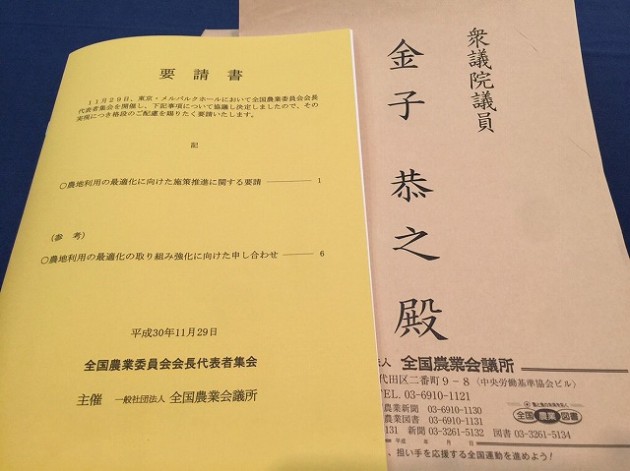 要請書
11月29日、東京・メルパルクホールにおいて全国農業委員会会長
代表者集会を開催し、下記事項について協議し決定しましたので、その
実現につき格段のご配慮を賜りたく要請いたします。
記
○農地利用の最適化に向けた施策推進に関する要請 ―― 1
(参 考)
○農地利用の最適化の取り組み強化に向けた申し合わせ ―― 6
平成30年11月29日
全国農業委員会会長代表者集会
主催 一般社団法人 全国農業会議所
衆議院議員
金子恭之殿
人 全国農業会議所
代田区二番町9-8(中央労働基準協会ビル)
TEL. 03-6910-1121
農業新聞 03-6910-1130
農業図書 03-6910-1131
131 新聞 03-3261-5132 図書 03-3261-5134
全国農業図書
平成 年 月 日
、担い手を応援する全国運動を進めよう!